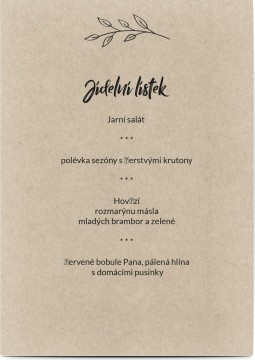 Jídelní lístek
Jarní salát
***
polévka sezóny s �erstvými krutony
***
Hov�zí
rozmarýnu másla
mladých brambor a zelené
***
�ervené bobule Pana, pálená hlina
s domácími pusinky